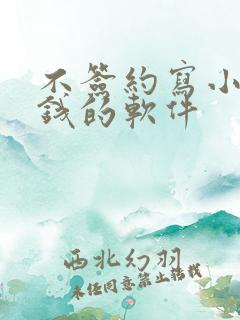 不簽約寫小
錢的軟件
西北幻羽
未經同意禁止轉載